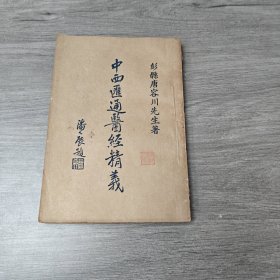 彭縣唐容川先生著
中西匯通醫經精義